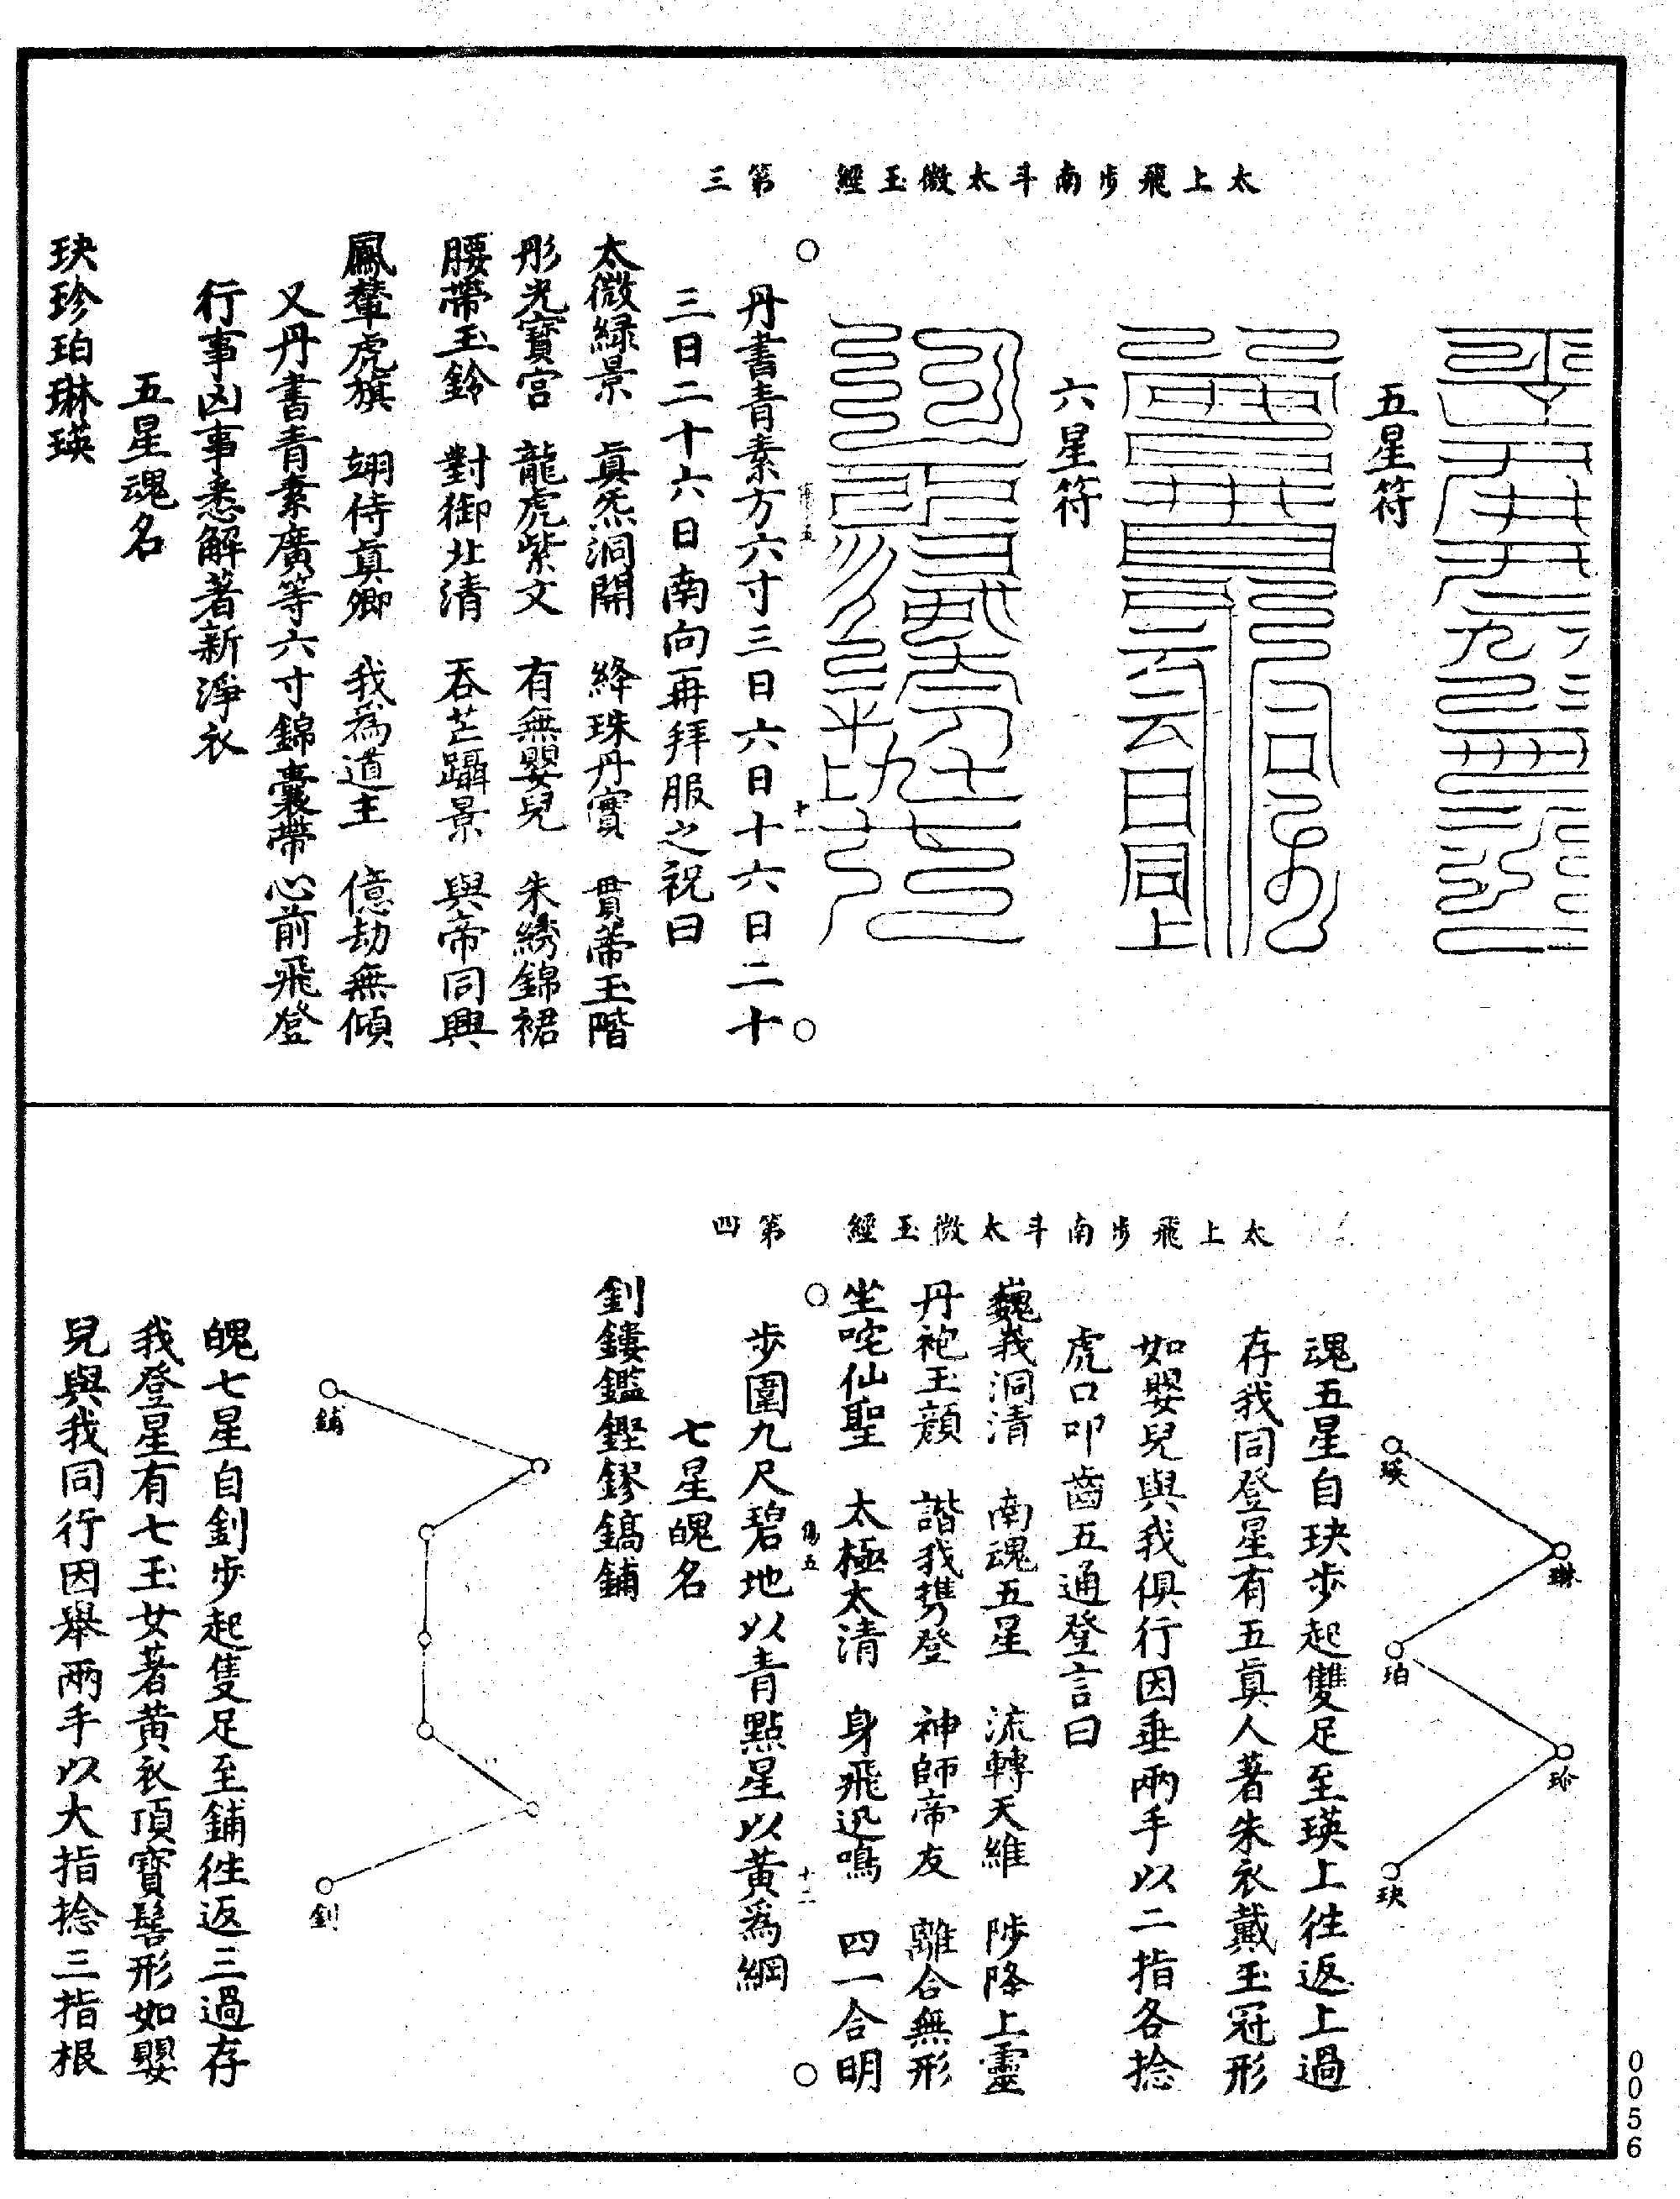 太上飛步南斗太微玉經　第三
五星符
六星符
丹書青素方六寸三日六日十六日二十
三日二十六日南向再拜服之祝曰
太微緑景　眞炁洞開　絳珠丹實　貫蒂玉階
彤光寳宫　龍虎紫文　有無嬰兒　朱綉錦裙
腰帶玉鈴　對御北清　吞芒躡景　與帝同興
鳳輦虎旗　翊侍眞卿　我為道主　億劫無傾
又丹書青素廣等六寸錦囊帶心前飛登
行事凶事悉解著新淨衣
五星魂名
玦珍珀琳瑛
十一
太上飛步南斗太微玉經　第四
瑛
琳
珀
珍
玦
魂五星自玦步起雙足至瑛上徃返上過
存我同登星有五眞人著朱衣戴玉冠形
如嬰兒與我俱行因垂兩手以二指各捻
虎口叩齒五通登言曰
巍峩洞清　南魂五星　流轉天維　陟降上靈
丹袍玉顔　諧我携登　神師帝友　離合無形
坐咤仙聖　太極太清　身飛迅鳴　四一合明
傷五
十二
步圍九尺碧地以青點星以黃為綱
七星魄名
釗鏤鑑鏗鏐鎬鋪
鋪
釗
魄七星自釗步起隻足至鋪徃返三過存
我登星有七玉女著黃衣頂寳髻形如嬰
兒與我同行因舉兩手以大指捻三指根
0056